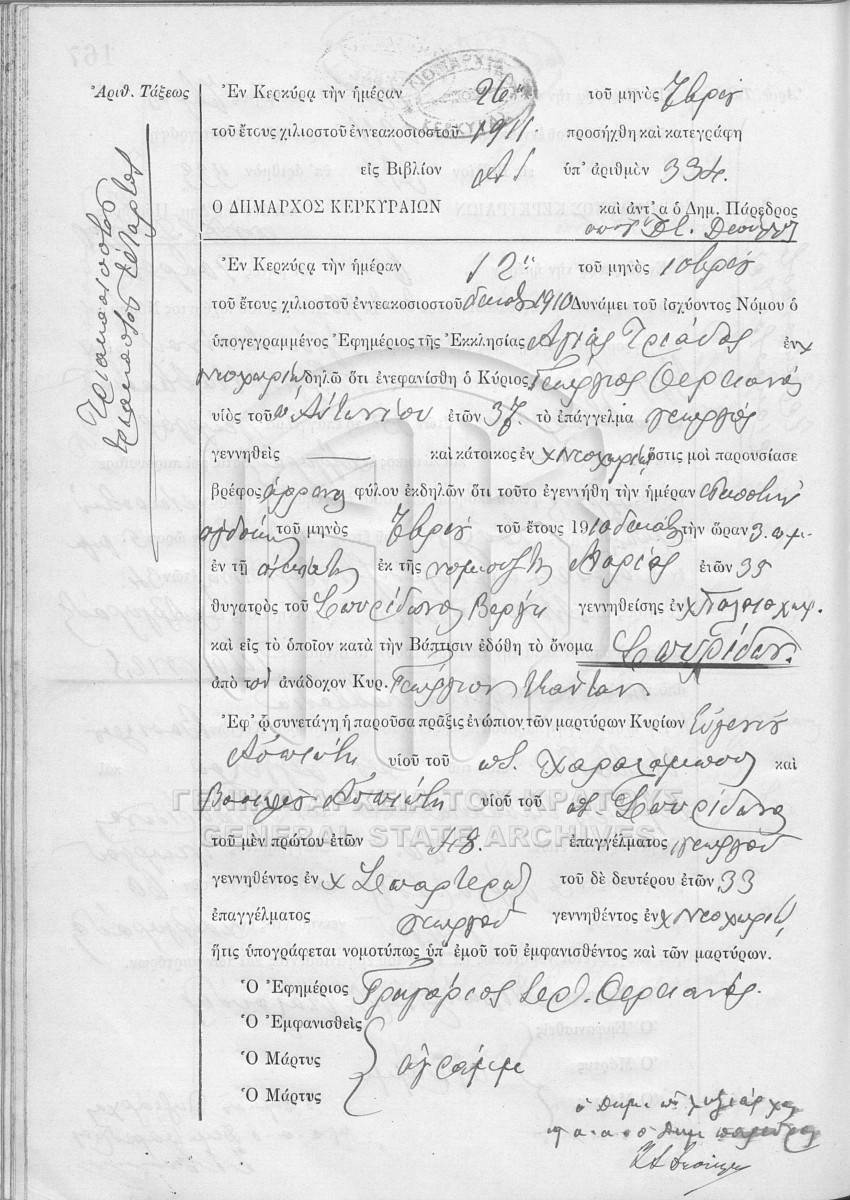 Ἀριθ. Τάξεως
Τριακοσιοστὸν
τριακοστὸν τέταρτος
ΚΕΡΚΥΡΑΣ
Ἐν Κερκύρᾳ τὴν ἡμέραν 26ην τοῦ μηνὸς
τοῦ ἔτους χιλιοστοῦ ἐννεακοσιοστοῦ 1911 προσήχθη καὶ κατεγράφη
εἰς Βιβλίον ὑπ' ἀριθμὸν 334.
Ο ΔΗΜΑΡΧΟΣ ΚΕΡΚΥΡΑΙΩΝ καὶ ἀντ' α ὁ Δημ. Πάρεδρος
Ἐν Κερκύρᾳ τὴν ἡμέραν 12ην τοῦ μηνὸς
τοῦ ἔτους χιλιοστοῦ ἐννεακοσιοστοῦ 1910 Δυνάμει τοῦ ἰσχύοντος Νόμου ὁ
ὑπογεγραμμένος Ἐφημέριος τῆς Ἐκκλησίας Αγίας Τριάδος ἐν χ
Νεοχωρίῳ δηλῶ ὅτι ἐνεφανίσθη ὁ Κύριος Γεώργιος Θερειανός
υἱὸς τοῦ Ἀντωνίου ἐτῶν 37. τὸ ἐπάγγελμα γεωργός
γεννηθεὶς καὶ κάτοικος ἐν χ Νεοχωρίῳ ὅστις μοὶ παρουσίασε
βρέφος ἄρρεν φύλου ἐκδηλῶν ὅτι τοῦτο ἐγεννήθη τὴν ἡμέραν εἰκοστὴν
ὀγδόην τοῦ μηνὸς τοῦ ἔτους 1910 τὴν ὥραν 3. π.μ.
ἐν τῇ ἐκ τῆς νομίμου Μαρίας ἐτῶν 35
θυγατρὸς τοῦ Σπυρίδωνος Βέργη γεννηθείσης ἐν χ Παλαιοχωρ.
καὶ εἰς τὸ ὁποῖον κατὰ τὴν Βάπτισιν ἐδόθη τὸ ὄνομα Σπυρίδων.
ἀπὸ τὸν ἀνάδοχον Κυρ. Γεώργιον
Ἐφ' ᾧ συνετάγη ἡ παροῦσα πρᾶξις ἐνώπιον τῶν μαρτύρων Κυρίων Εὐγενίου
Ἀσπιώτη υἱοῦ τοῦ π. Χαραλάμπους καὶ
Βασιλείου Ἀσπιώτη υἱοῦ τοῦ π. Σπυρίδωνος
ΓΕΝΙΚΑ ΑΡΧΕΙΑ ΤΟΥ ΚΡΑΤΟΥΣ
GENERAL STATE ARCHIVES
τοῦ μὲν πρώτου ἐτῶν 48. ἐπαγγέλματος γεωργοῦ
γεννηθέντος ἐν χ Σπαρτερᾷ τοῦ δὲ δευτέρου ἐτῶν 33
ἐπαγγέλματος γεωργοῦ γεννηθέντος ἐν χ Νεοχωρίῳ
ἥτις ὑπογράφεται νομοτύπως ὑπ' ἐμοῦ τοῦ ἐμφανισθέντος καὶ τῶν μαρτύρων.
Ὁ Ἐφημέριος Γρηγόριος Ἱερ. Θερειανός.
Ὁ Ἐμφανισθεὶς
Ὁ Μάρτυς ἀγράμμ
Ὁ Μάρτυς